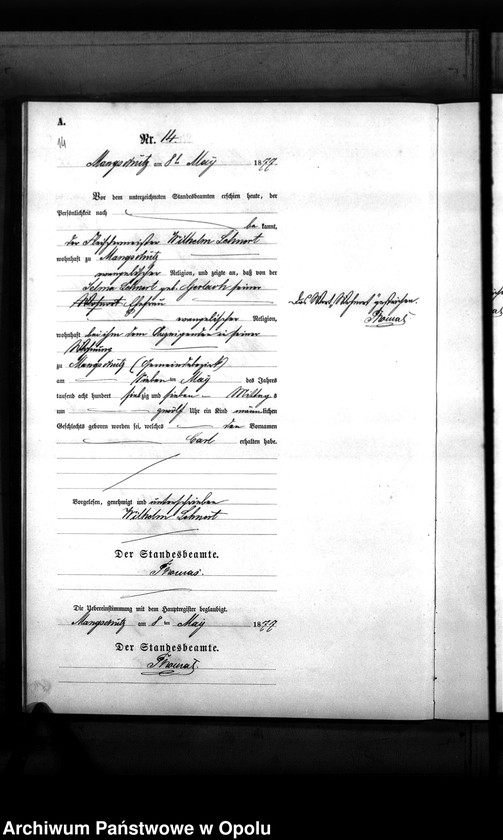 A.
14
Nr. 14.
Mangschütz am 8t May 1877.
Vor dem unterzeichneten Standesbeamten erschien heute, der
Persönlichkeit nach
be kannt,
der Fleischermeister Wilhelm Lehnort
wohnhaft zu Mangschütz
evangelischer Religion, und zeigte an, daß von der
Selma Lehnort geb. Gerlach seiner
Wohnort Ehefrau
evangelischer Religion,
wohnhaft bei ihm dem Anzeigenden in seiner
Wohnung
zu Mangschütz (Gemeindebezirk)
am Sieben ten May des Jahres
tausend acht hundert siebzig und sieben Mittag s
um zwölf Uhr ein Kind männlichen
Geschlechts geboren worden sei, welches den Vornamen
Carl erhalten habe.
das Wort "Wohnort" gestrichen.
Vorgelesen, genehmigt und unterschrieben
Wilhelm Lehnort
Der Standesbeamte.
Die Uebereinstimmung mit dem Hauptregister beglaubigt.
Mangschütz am 8 ten May 1877.
Der Standesbeamte.
Archiwum Państwowe w Opolu